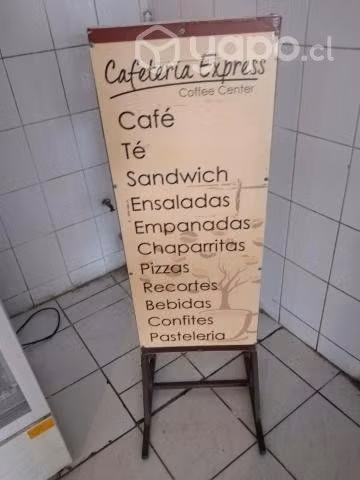 yapo.cl
Cafetería Express
Coffee Center
Café
Té
Sandwich
Ensaladas
Empanadas
Chaparritas
Pizzas
Recortes
Bebidas
Confites
Pasteleria